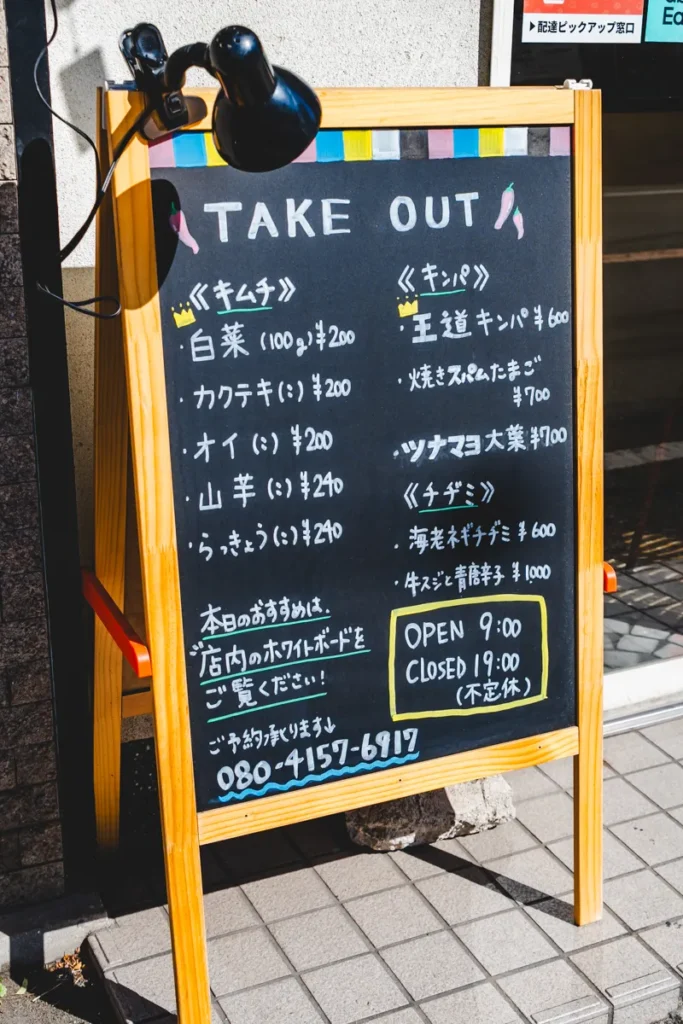 ▶配達ピックアップ窓口
Ea
TAKE OUT
《キムチ》
・白菜(100g)¥200
・カクテキ(〃)¥200
・オイ(〃)¥200
・山芋(〃)¥240
・らっきょう(〃)¥240
本日のおすすめは、
店内のホワイトボードを
ご覧ください!
ご予約承ります↓
080-4157-6917
《キンパ》
・王道キンパ¥600
・焼きスパムたまご
¥700
・ツナマヨ大葉¥700
《チヂミ》
・海老ネギチヂミ¥600
・牛スジと青唐辛子¥1000
OPEN 9:00
CLOSED 19:00
(不定休)